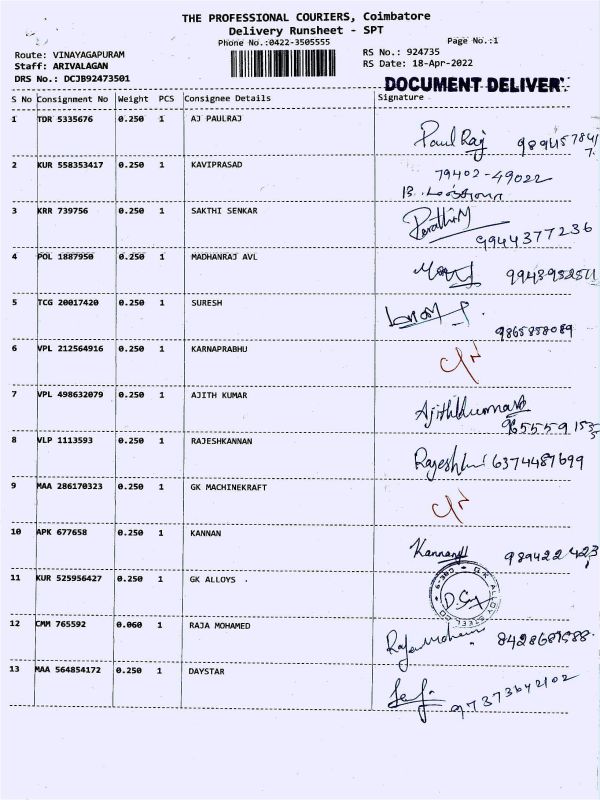 THE PROFESSIONAL COURIERS, Coimbatore
Delivery Runsheet - SPT
Phone No.:0422-3505555 Page No.:1
Route: VINAYAGAPURAM RS No.: 924735
Staff: ARIVALAGAN RS Date: 18-Apr-2022
DRS No.: DCJB92473501
DOCUMENT DELIVER
S No Consignment No Weight PCS Consignee Details Signature
1 TDR 5335676 0.250 1 AJ PAULRAJ
Paul Raj
2 KUR 558353417 0.250 1 KAVIPRASAD
79402-49022
3 KRR 739756 0.250 1 SAKTHI SENKAR
9944377236
4 POL 1887950 0.250 1 MADHANRAJ AVL
9943952511
5 TCG 20017420 0.250 1 SURESH
9865858089
6 VPL 212564916 0.250 1 KARNAPRABHU
C/N
7 VPL 498632079 0.250 1 AJITH KUMAR
Ajithkumar
8 VLP 1113593 0.250 1 RAJESHKANNAN
6374487699
9 MAA 286170323 0.250 1 GK MACHINEKRAFT
C/N
10 APK 677658 0.250 1 KANNAN
Kannan
11 KUR 525956427 0.250 1 GK ALLOYS
12 CMM 765592 0.060 1 RAJA MOHAMED
13 MAA 564854172 0.250 1 DAYSTAR
97373642102